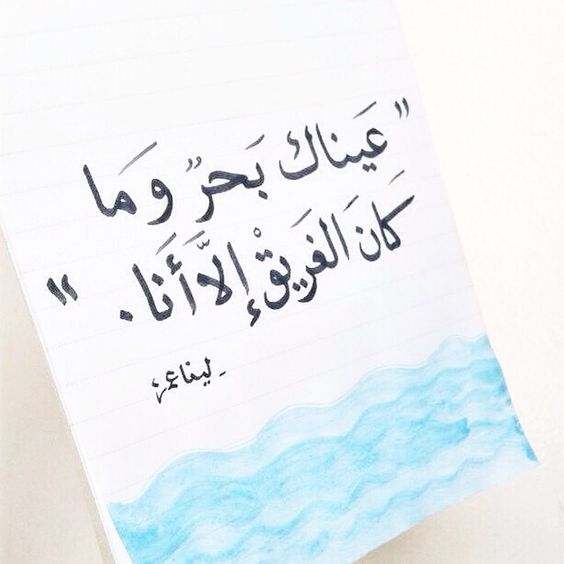 " عَيناك بَحرٌ وَ مَا
كَانَ الغَريقْ إلاَّ أَنَا . "
- لينا عمر